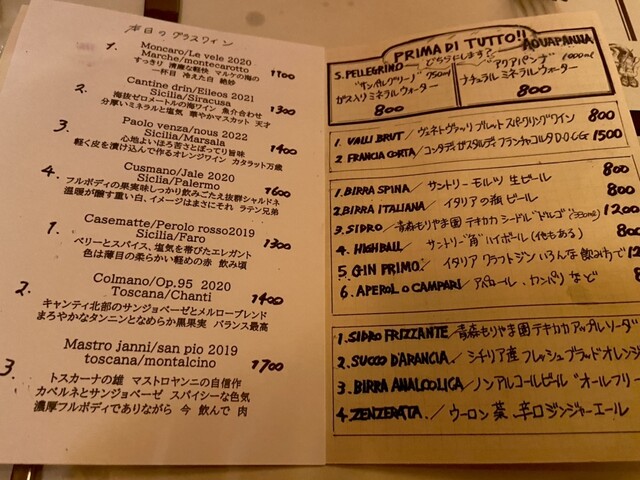 本日のグラスワイン
1. Moncaro/Le vele 2020
Marche/montecarotto
すっきり 清廉な軽快 マルケの海の 1100
一杯目 冷えた白 絶妙
2. Cantine drin/Eileos 2021
Sicilia/Siracusa
海抜ゼロメートルの海ワイン 魚介合わせ 1300
分厚いミネラルと塩気 華やかマスカット 天才
3. Paolo venza/nous 2022
Sicilia/Marsala 1400
心地よいほろ苦さとぽってり旨味
軽く皮を漬け込んで作るオレンジワイン カタラット万歳
4. Cusmano/Jale 2020
Siclia/Palermo 1600
フルボディの果実味しっかり飲みごたえ抜群シャルドネ
温暖が醸す重い白、イメージはまさにそれ ラテン兄弟
1. Casematte/Perolo rosso2019
Sicilia/Faro 1300
ベリーとスパイス、塩気を帯びたエレガント
色は薄目の柔らかい軽めの赤 飲み頃
2. Colmano/Op.95 2020
Toscana/Chanti 1400
キャンティ北部のサンジョベーゼとメルローブレンド
まろやかなタンニンとなめらか黒果実 バランス最高
3. Mastro janni/san pio 2019
toscana/montalcino 1700
トスカーナの雄 マストロヤンニの自信作
カベルネとサンジョベーゼ スパイシーな色気
濃厚フルボディでありながら 今 飲んで 肉
PRIMA DI TUTTO!!
どちらにします?
S.PELLEGRINO "サンペレグリーノ" 750ml
ガス入りミネラルウォーター
800
AQUAPANNA
"アクアパンナ" 1000ml
ナチュラルミネラルウォーター
800
1. VALLI BRUT/ヴェネト ヴァッリ ブルット スパークリングワイン 800
2. FRANCIA CORTA/コンタディ カスタルディ フランチャコルタ D.O.C.G 1500
1. BIRRA SPINA/サントリー モルツ 生ビール 800
2. BIRRA ITALIANA/イタリアの瓶ビール 800
3. SIDRO/青森もりやま園 テキカカシードル "ドルゴ" (330ml) 1200
4. HIGHBALL/サントリー "角" ハイボール (他もある) 800
5. GIN PRIMO/イタリア クラフトジン いろんな飲みかたで 12
6. APEROL O CAMPARI/アペロール、カンパリ など 8
1. SIDRO FRIZZANTE/青森もりやま園 テキカカ アップルソーダ
2. SUCCO D'ARANCIA/シチリア産 フレッシュブラッドオレンジ
3. BIRRA ANALCOLICA/ノンアルコールビール "オールフリー
4. ZENZERATA./ウーロン茶、辛口ジンジャーエール